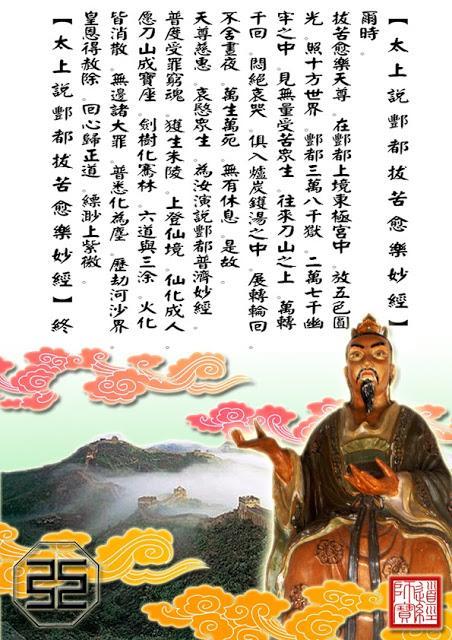 【太上說酆都拔苦愈樂妙經】
爾時。
拔苦愈樂天尊。在酆都上境東極宮中。放五色圓
光。照十方世界。酆都三萬八千獄。二萬七千幽
牢之中。見無量受苦眾生。往來刀山之上。萬轉
千回。悶絕哀哭。俱入爐炭鑊湯之中。展轉輪回。
不舍晝夜。萬生萬死。無有休息。是故
天尊慈惠。哀愍眾生。為汝演說酆都普濟妙經。
普度受罪窮魂。獲生朱陵。上登仙境。仙化成人。
愿刀山成寶座。劍樹化騫林。六道與三涂。火化
皆消散。無邊諸大罪。普悉化為塵。歷劫河沙界。
皇恩得赦除。回心歸正道。縹渺上紫微。
【太上說酆都拔苦愈樂妙經】終
道經師寶